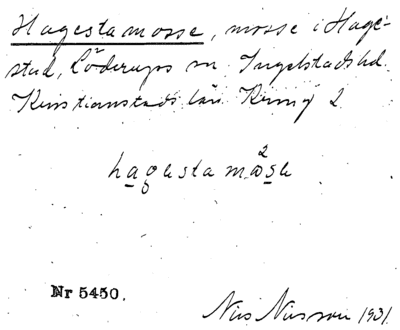 Hagestamosse, mosse i Hage-
stad, Löderups sn Ingelstads hd.
Kristianstads län
hagesta mose
2
Nr 5450.
Nils Nilsson 1931.